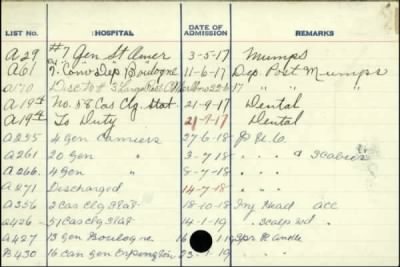 LIST No. HOSPITAL DATE OF ADMISSION REMARKS
A29 #7 Gen St Omer 3-5-17 Mumps
A61 7. Conv Dep Boulogne 11-6-17 Dep. Post Mumps
A170 Disc to # 3 " "
A19 No. 58 Cas Clg. Stat 21-9-17 Dental
A19 To Duty 21-9-17 Dental
A255 4 Gen Camiers 27-6-18
A261 20 Gen " 3-7-18 " " " & Scabies
A266. 4 Gen " 8-7-18 " " "
A271 Discharged 14-7-18 " " "
A356 2 Cas Clg Stat 18-10-18 Inj Head acc
A426 51 Cas Clg Stat 14-1-19 " Scalp wd
A427 13 Gen Boulogne 16 -19 Spr R Ankle
B430 16 Can Gen Orpington 23-1-19 " "